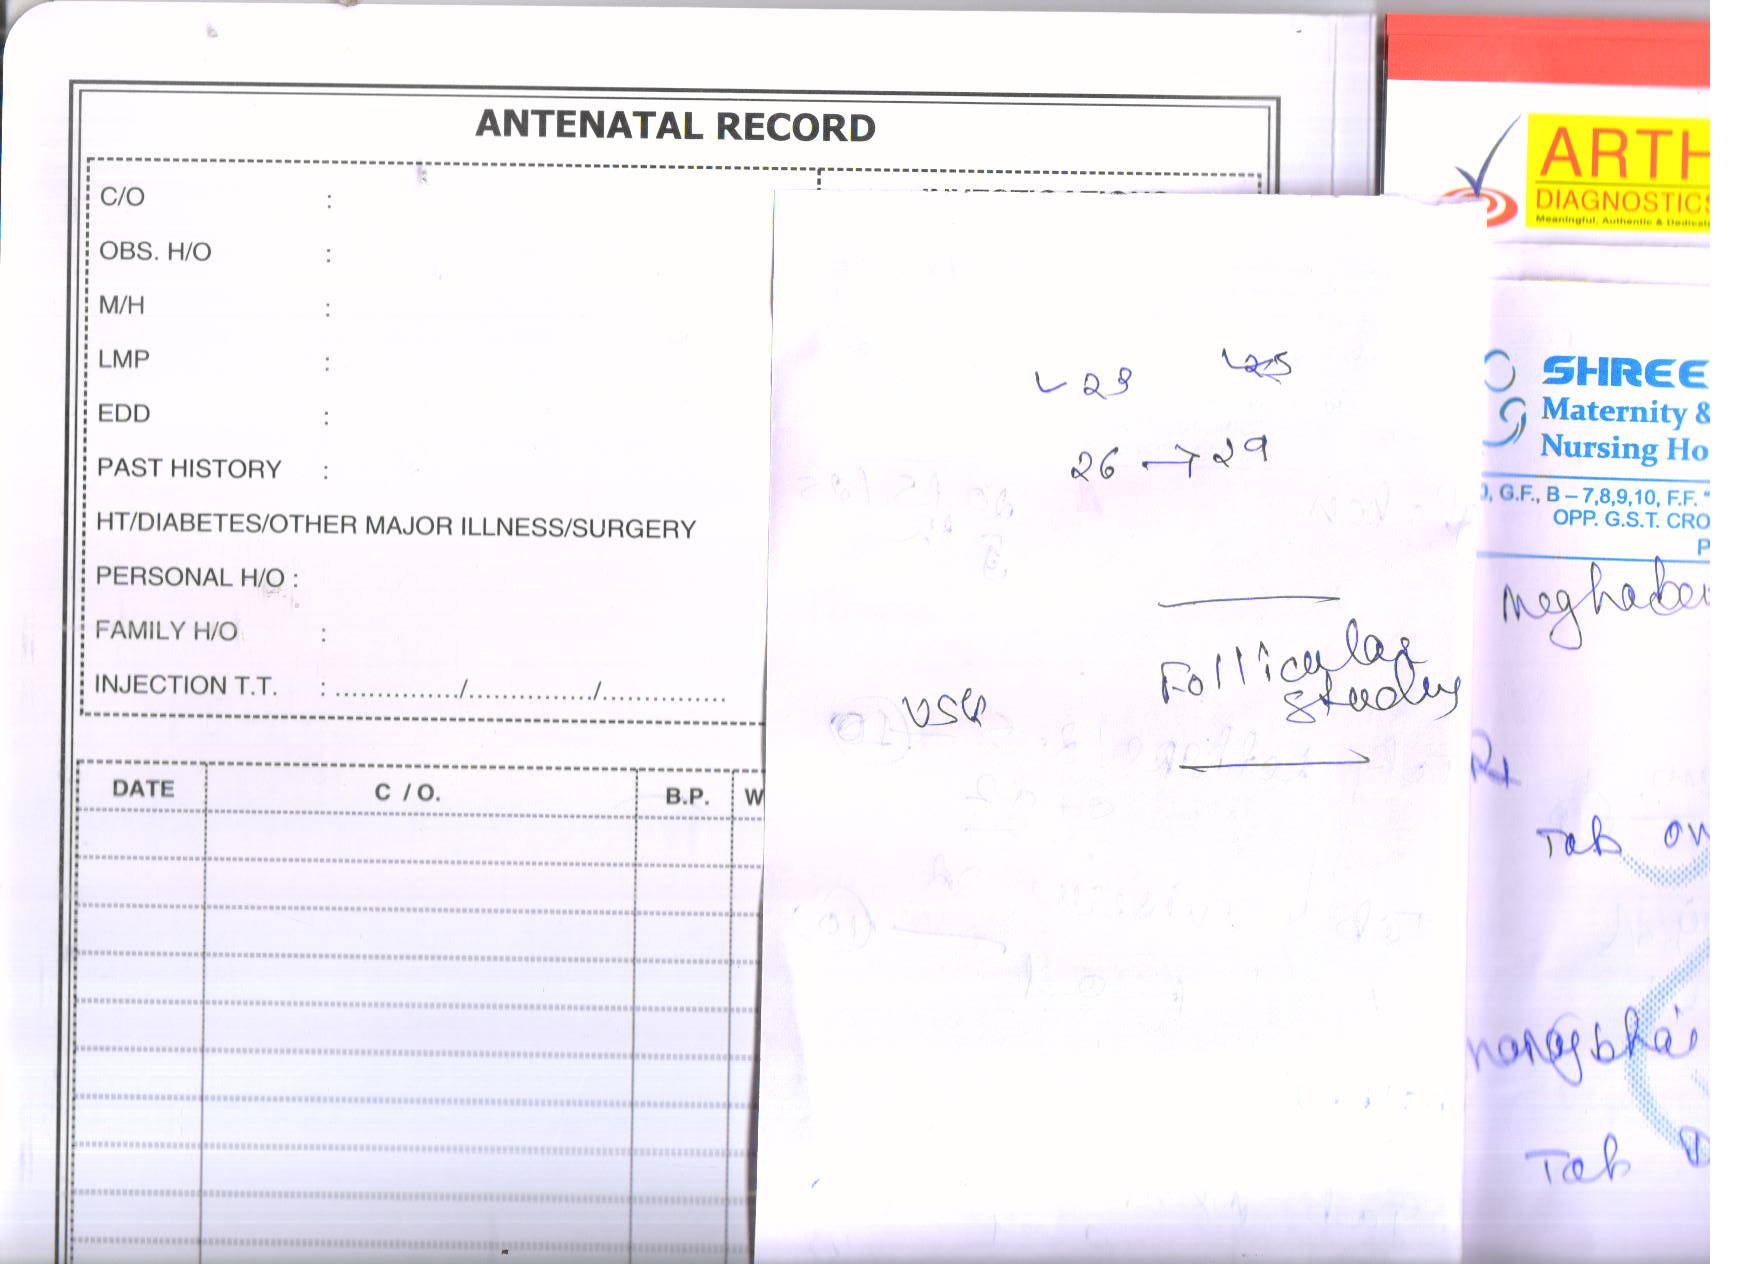 ANTENATAL RECORD
C/O :
OBS. H/O :
M/H :
LMP :
EDD :
PAST HISTORY :
HT/DIABETES/OTHER MAJOR ILLNESS/SURGERY
PERSONAL H/O :
FAMILY H/O :
INJECTION T.T. : ............../............../..............
DATE C / O. B.P. W
23 25
26 → 29
USG Follicular
study
ARTH
DIAGNOSTICS
Meaningful, Authentic & Dedicate
SHREE
Maternity &
Nursing Ho
, G.F., B – 7,8,9,10, F.F. "
OPP. G.S.T. CRO
P
Meghaben
Rx
Tab
Tab